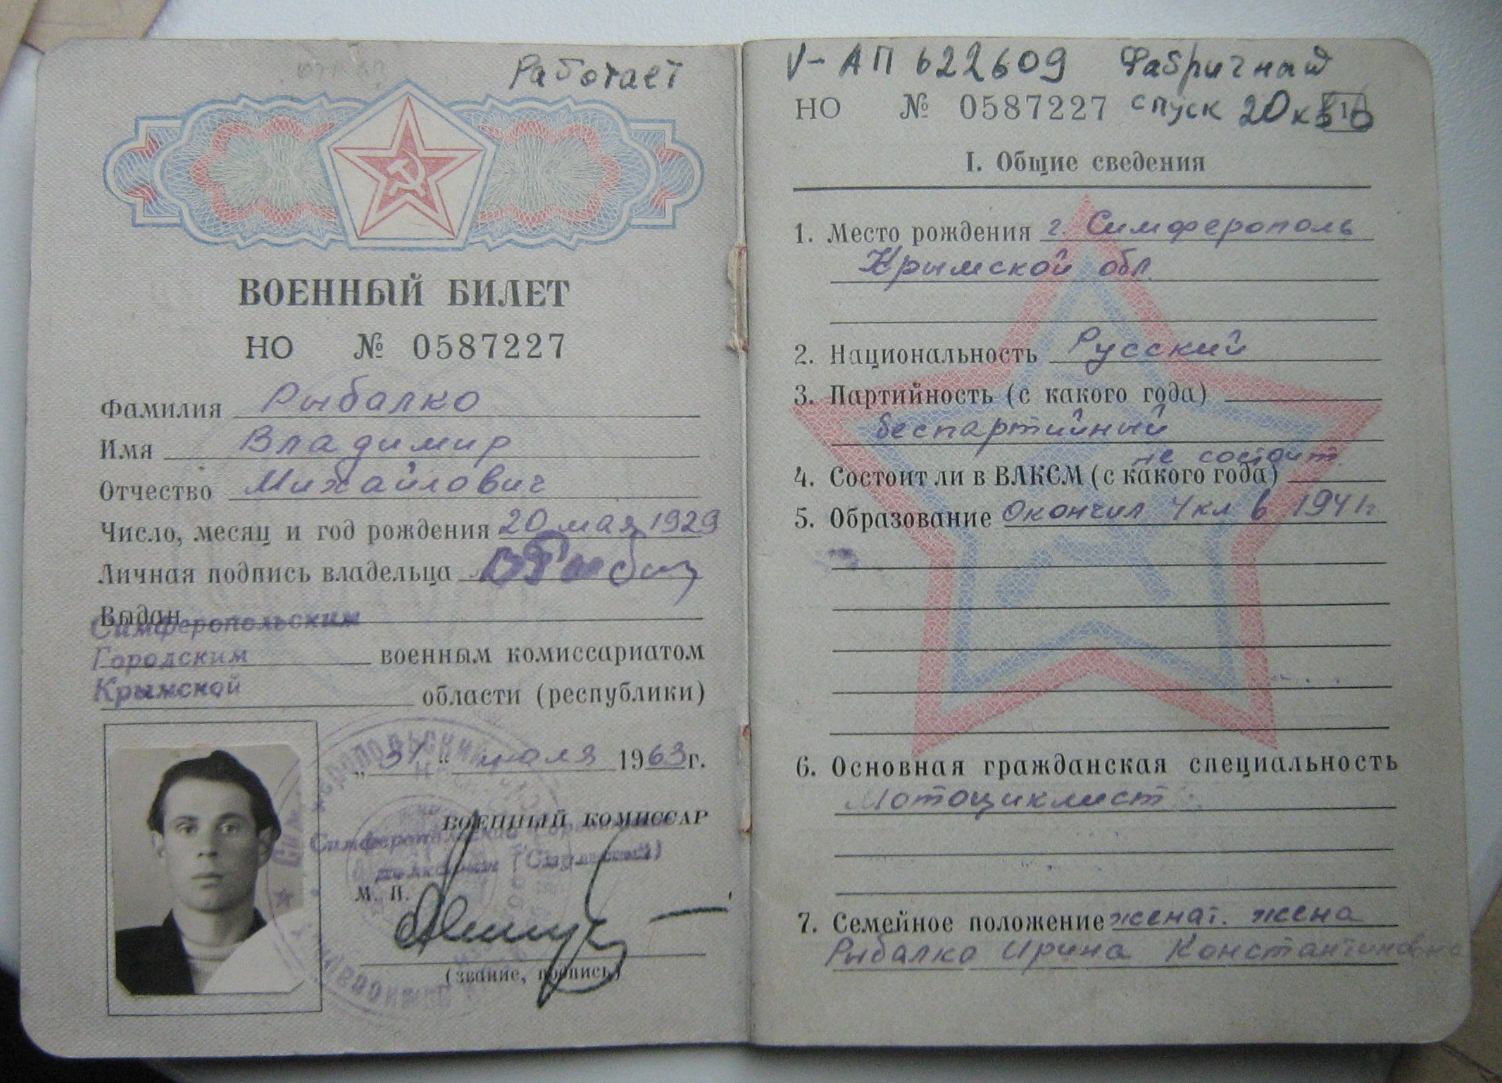 Работает
ВОЕННЫЙ БИЛЕТ
НО № 0587227
Фамилия Рыбалко
Имя Владимир
Отчество Михайлович
Число, месяц и год рождения 20 мая 1929
Личная подпись владельца
Выдан
Симферопольским
Городским военным комиссариатом
Крымской области (республики)
„31“ июля 1963 г.
ВОЕННЫЙ КОМИССАР
М. П.
(звание, подпись)
V-АП 622609 Фабричный
НО № 0587227 спуск 20 кв
I. Общие сведения
1. Место рождения г. Симферополь
Крымской обл.
2. Национальность Русский
3. Партийность (с какого года)
беспартийный
не состоит
4. Состоит ли в ВЛКСМ (с какого года)
5. Образование Окончил 4 кл в 1941 г.
6. Основная гражданская специальность
Мотоциклист
7. Семейное положение женат. жена
Рыбалко Ирина Константиновна